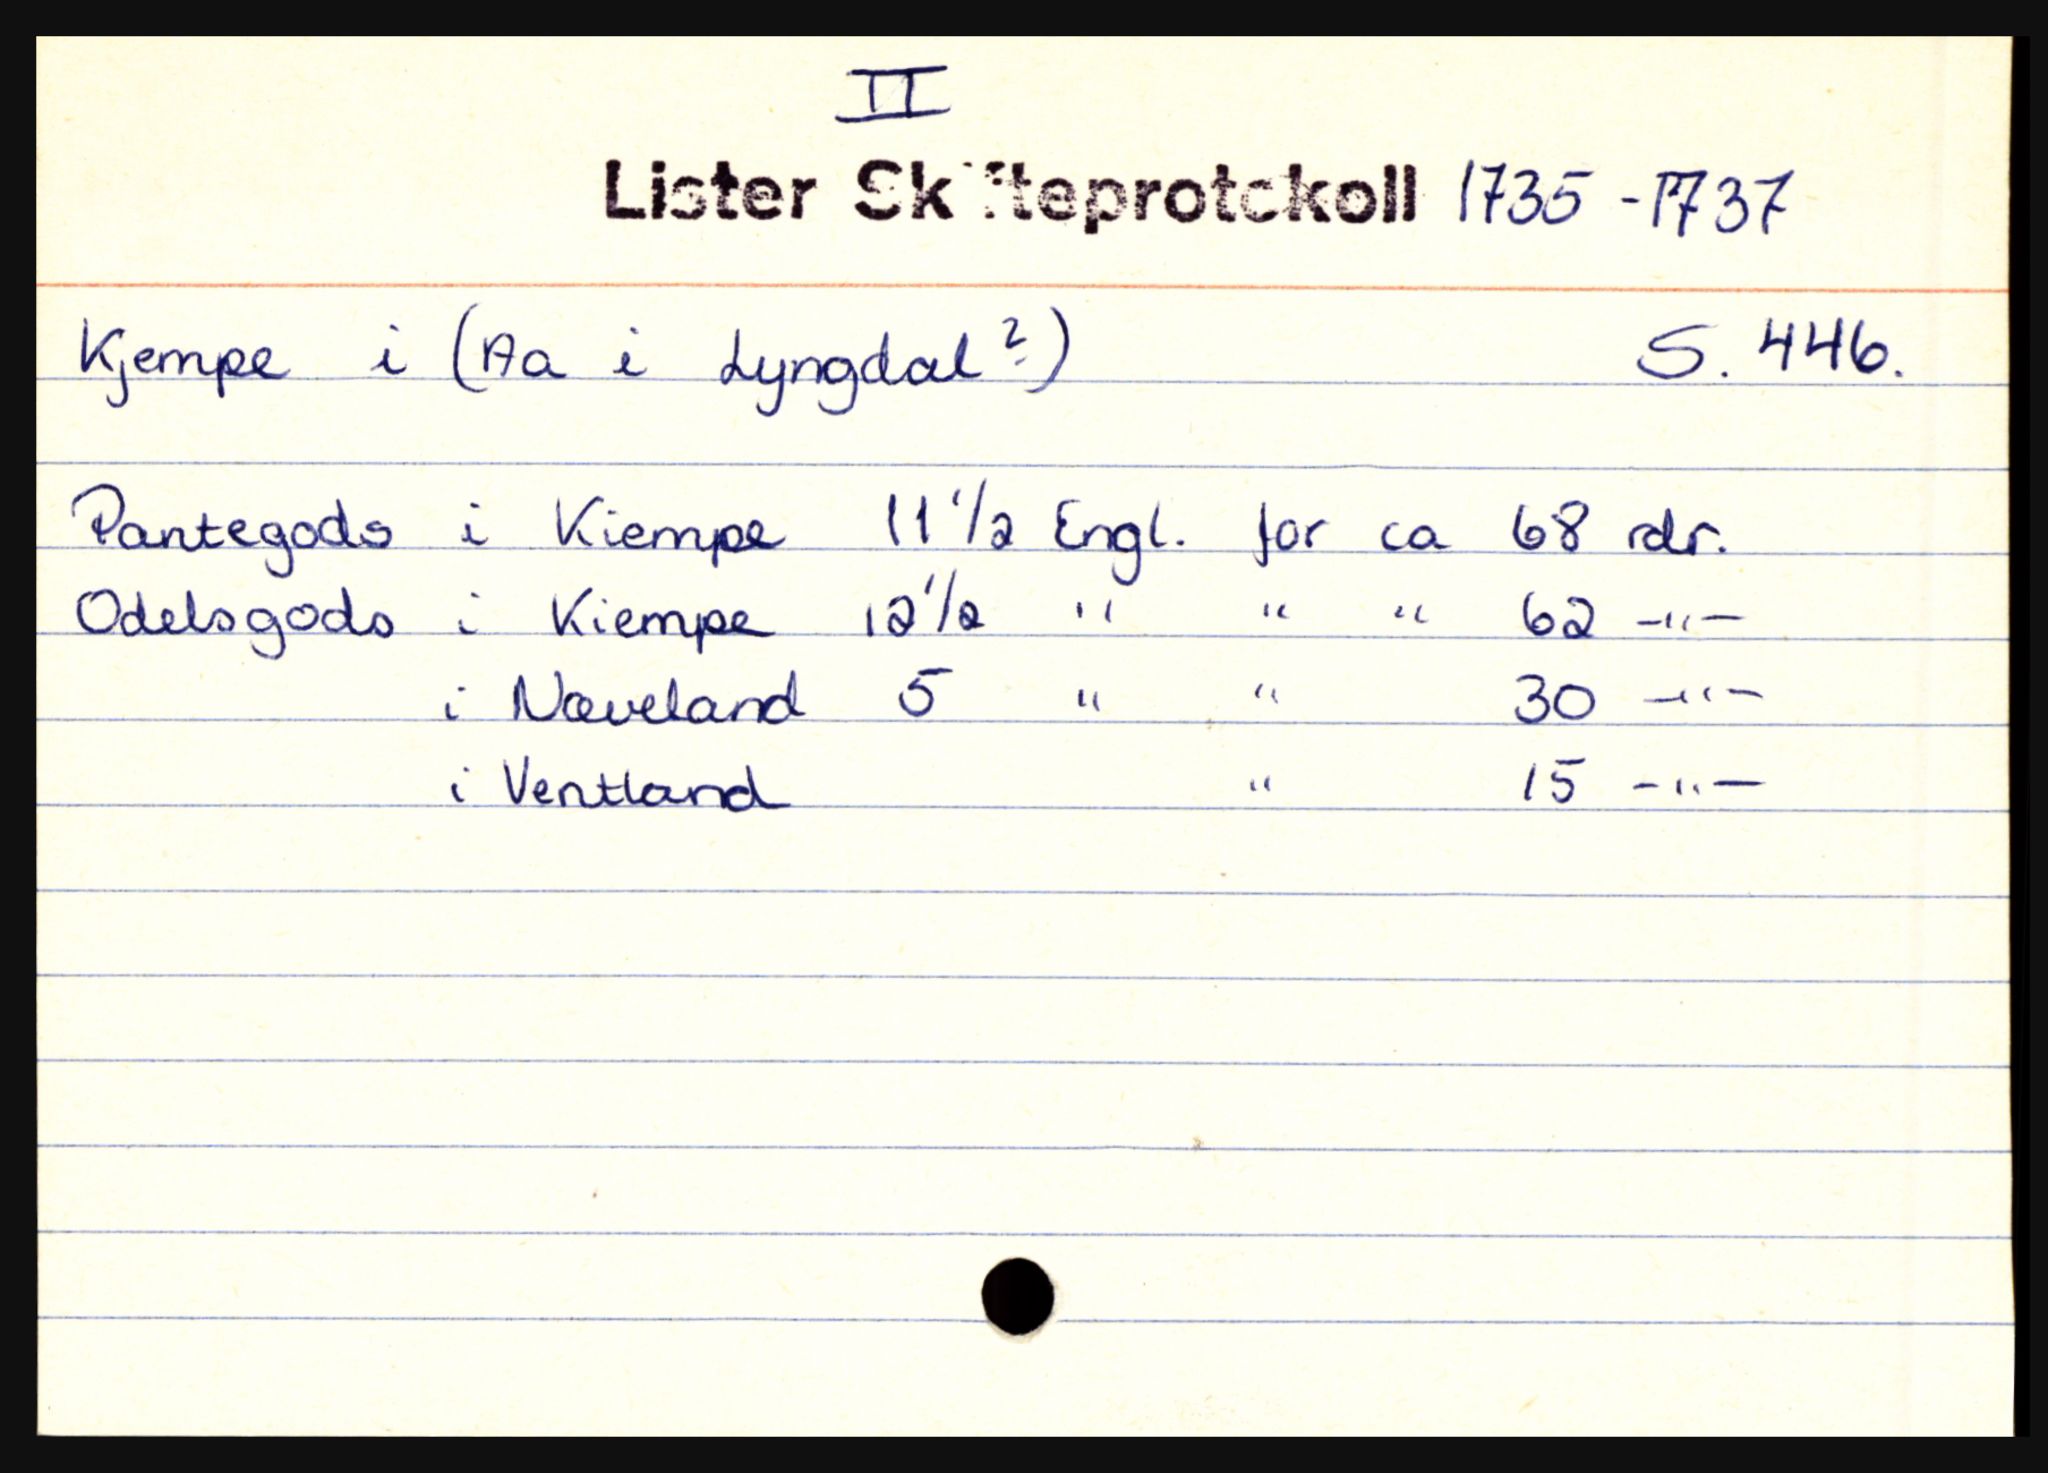 II
Lister Skifteprotokoll 1735 - 1737
Kjempe i (Aa i Lyngdal?) S. 446.
Pantegods i Kiempe 11 1/2 Engl. for ca 68 rdr.
Odelsgods i Kiempe 12 1/2 " " " 62 -"-
i Næveland 5 " " 30 -"-
i Ventland " 15 -"-